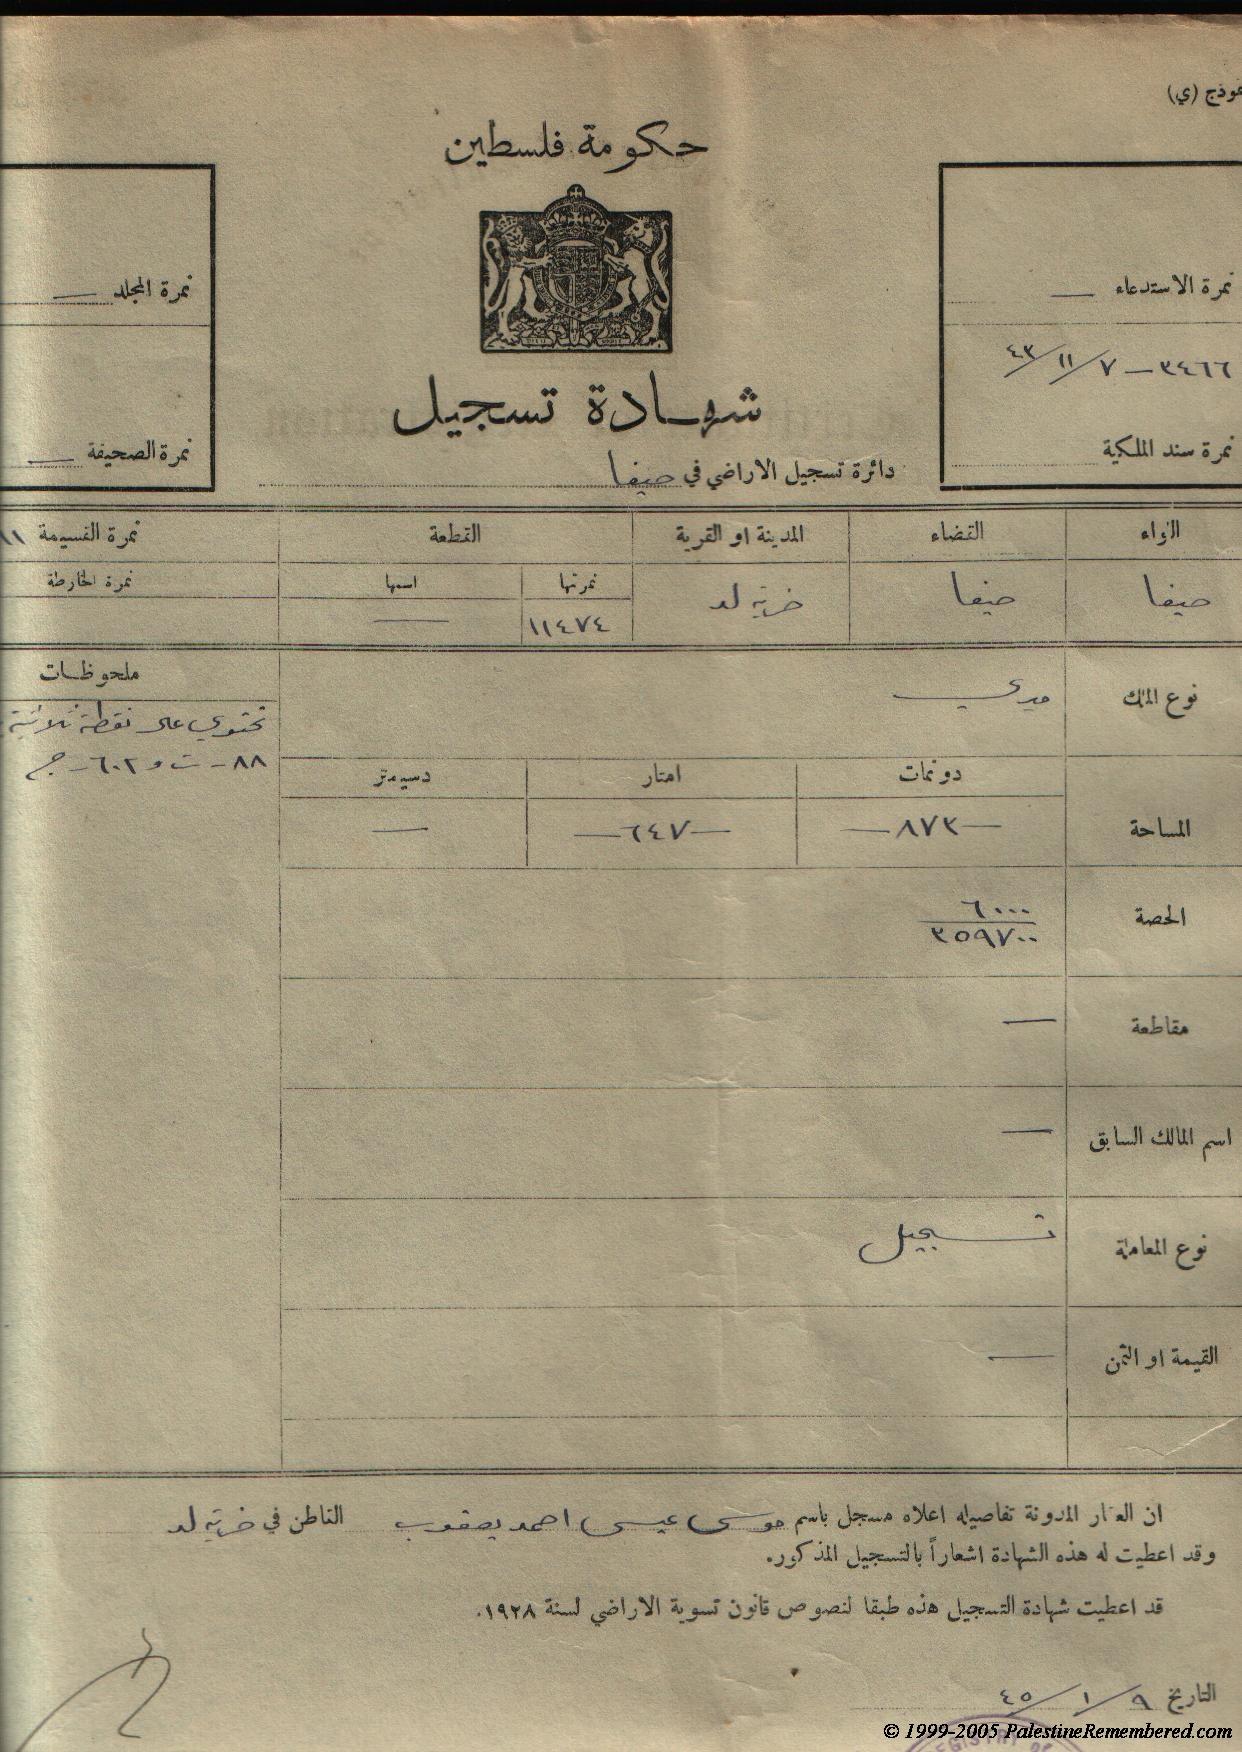 نموذج (ي)
حكومة فلسطين
نمرة الاستدعاء —
٣٤٦٦ — ٧/١١/٤٣
نمرة سند الملكية
نمرة المجلد —
نمرة الصحيفة —
شهادة تسجيل
دائرة تسجيل الاراضي في حيفا
اللواء القضاء المدينة او القرية القطعة نمرة القسيمة ١١
نمرتها اسمها نمرة الخارطة
حيفا حيفا خربة لد ١١٤٧٤ —
ملحوظات
تحتوي على نقطة ثلاثية
٨٨ - ت و ٦٠٢ - ج
نوع الملك ميري
دونمات امتار دسيمتر
المساحة — ٨٧٣ — — ٦٤٧ — —
الحصة ٦٠٠٠
٣٥٩٧٠٠
مقاطعة —
اسم المالك السابق —
نوع المعاملة تسجيل
القيمة او الثمن —
ان العقار المدونة تفاصيله اعلاه مسجل باسم موسى عيسى احمد يعقوب القاطن في خربة لد
وقد اعطيت له هذه الشهادة اشعاراً بالتسجيل المذكور.
قد اعطيت شهادة التسجيل هذه طبقا لنصوص قانون تسوية الاراضي لسنة ١٩٢٨.
التاريخ ٩/١/٤٥
© 1999-2005 PalestineRemembered.com